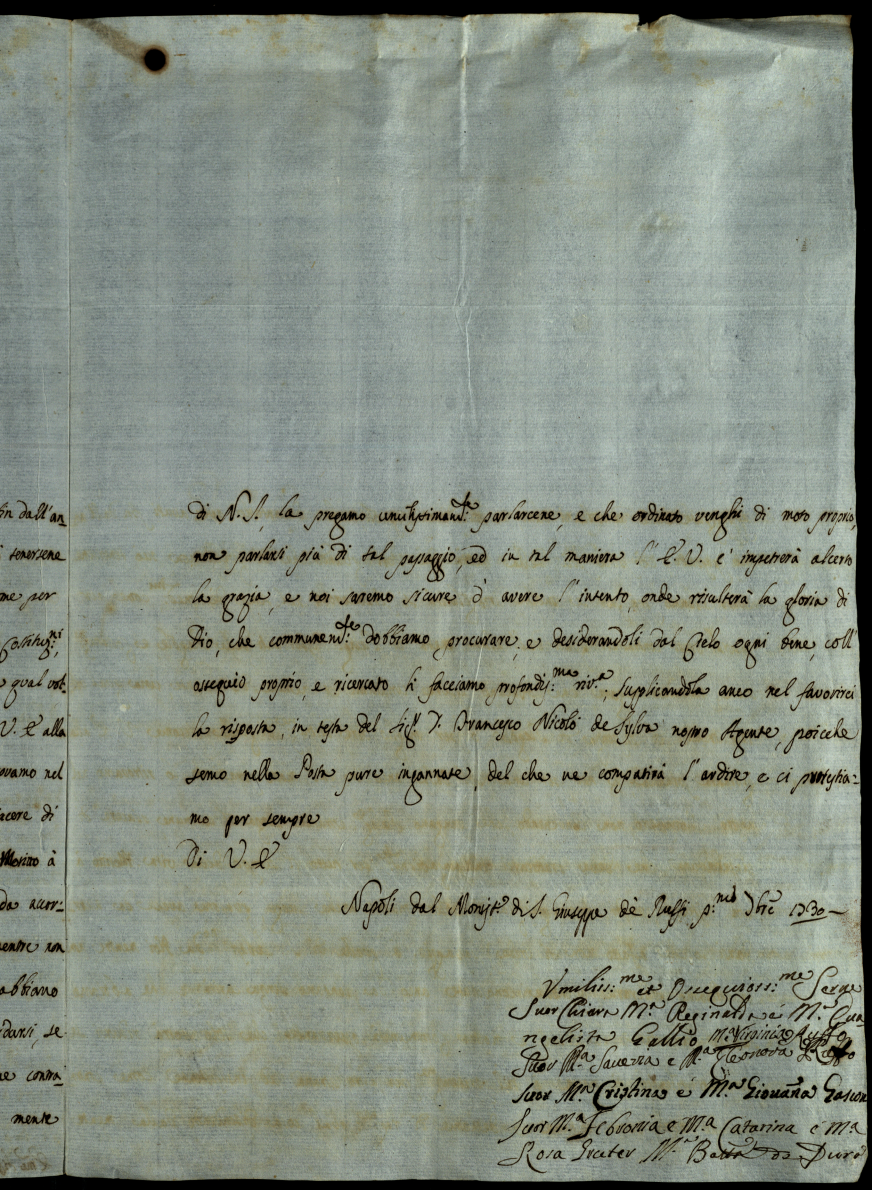 in dall'an
tenersene
me per
Costituz.ni,
qual vol:
V. E. alla
ovamo nel
acere di
Merito à
da accor:
mentre non
abbiano
darsi, se
ue contra
mente
di N. S., la pregamo umilissimam.te parlarcene, e che ordinato venghi di moto proprio,
non parlarsi più di tal passaggio, ed in tal maniera l' E. V. c' impetrerà alcerto
la grazia, e noi saremo sicure d' avere l' intento, onde risulterà la gloria di
Dio, che communem.te dobbiamo procurare, e desiderandoli dal Cielo ogni bene, coll'
ossequio proprio, e ricercato li facciamo profondiss:ma riv.a, supplicandola anco nel favorirci
la risposta, in testa del Sig.r D. Francesco Nicolò de Sylva nostro Agente, poiche
semo nella Posta pure ingannate, del che ne compatirà l' ardire, e ci protestia=
mo per sempre
Di V. E.
Napoli dal Monist.o di S. Giuseppe dè Ruffi p.mo Xbre 1730
Vmiliss:me et Ossequioss:me Serve
Suor Chiara M.a Reginalda e M.a Eua
ngelista Gallio M.a Virginia Ruffo
Suor M.a Saueria e M.a Eleonora Ruffo
Suor M.a Cristina e M.a Giouaña Gascon
Suor M.a Febronia e M.a Catarina e M.a
Rosa Gruter M.a Batta de Duro